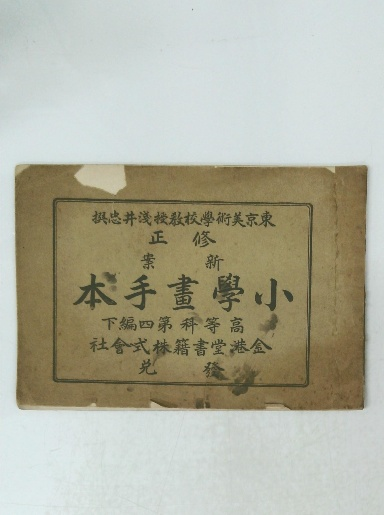 東京美術學校教授淺井忠撰
修正
新案
小學畫手本
高等科第四編下
金港堂書籍株式會社
發兌